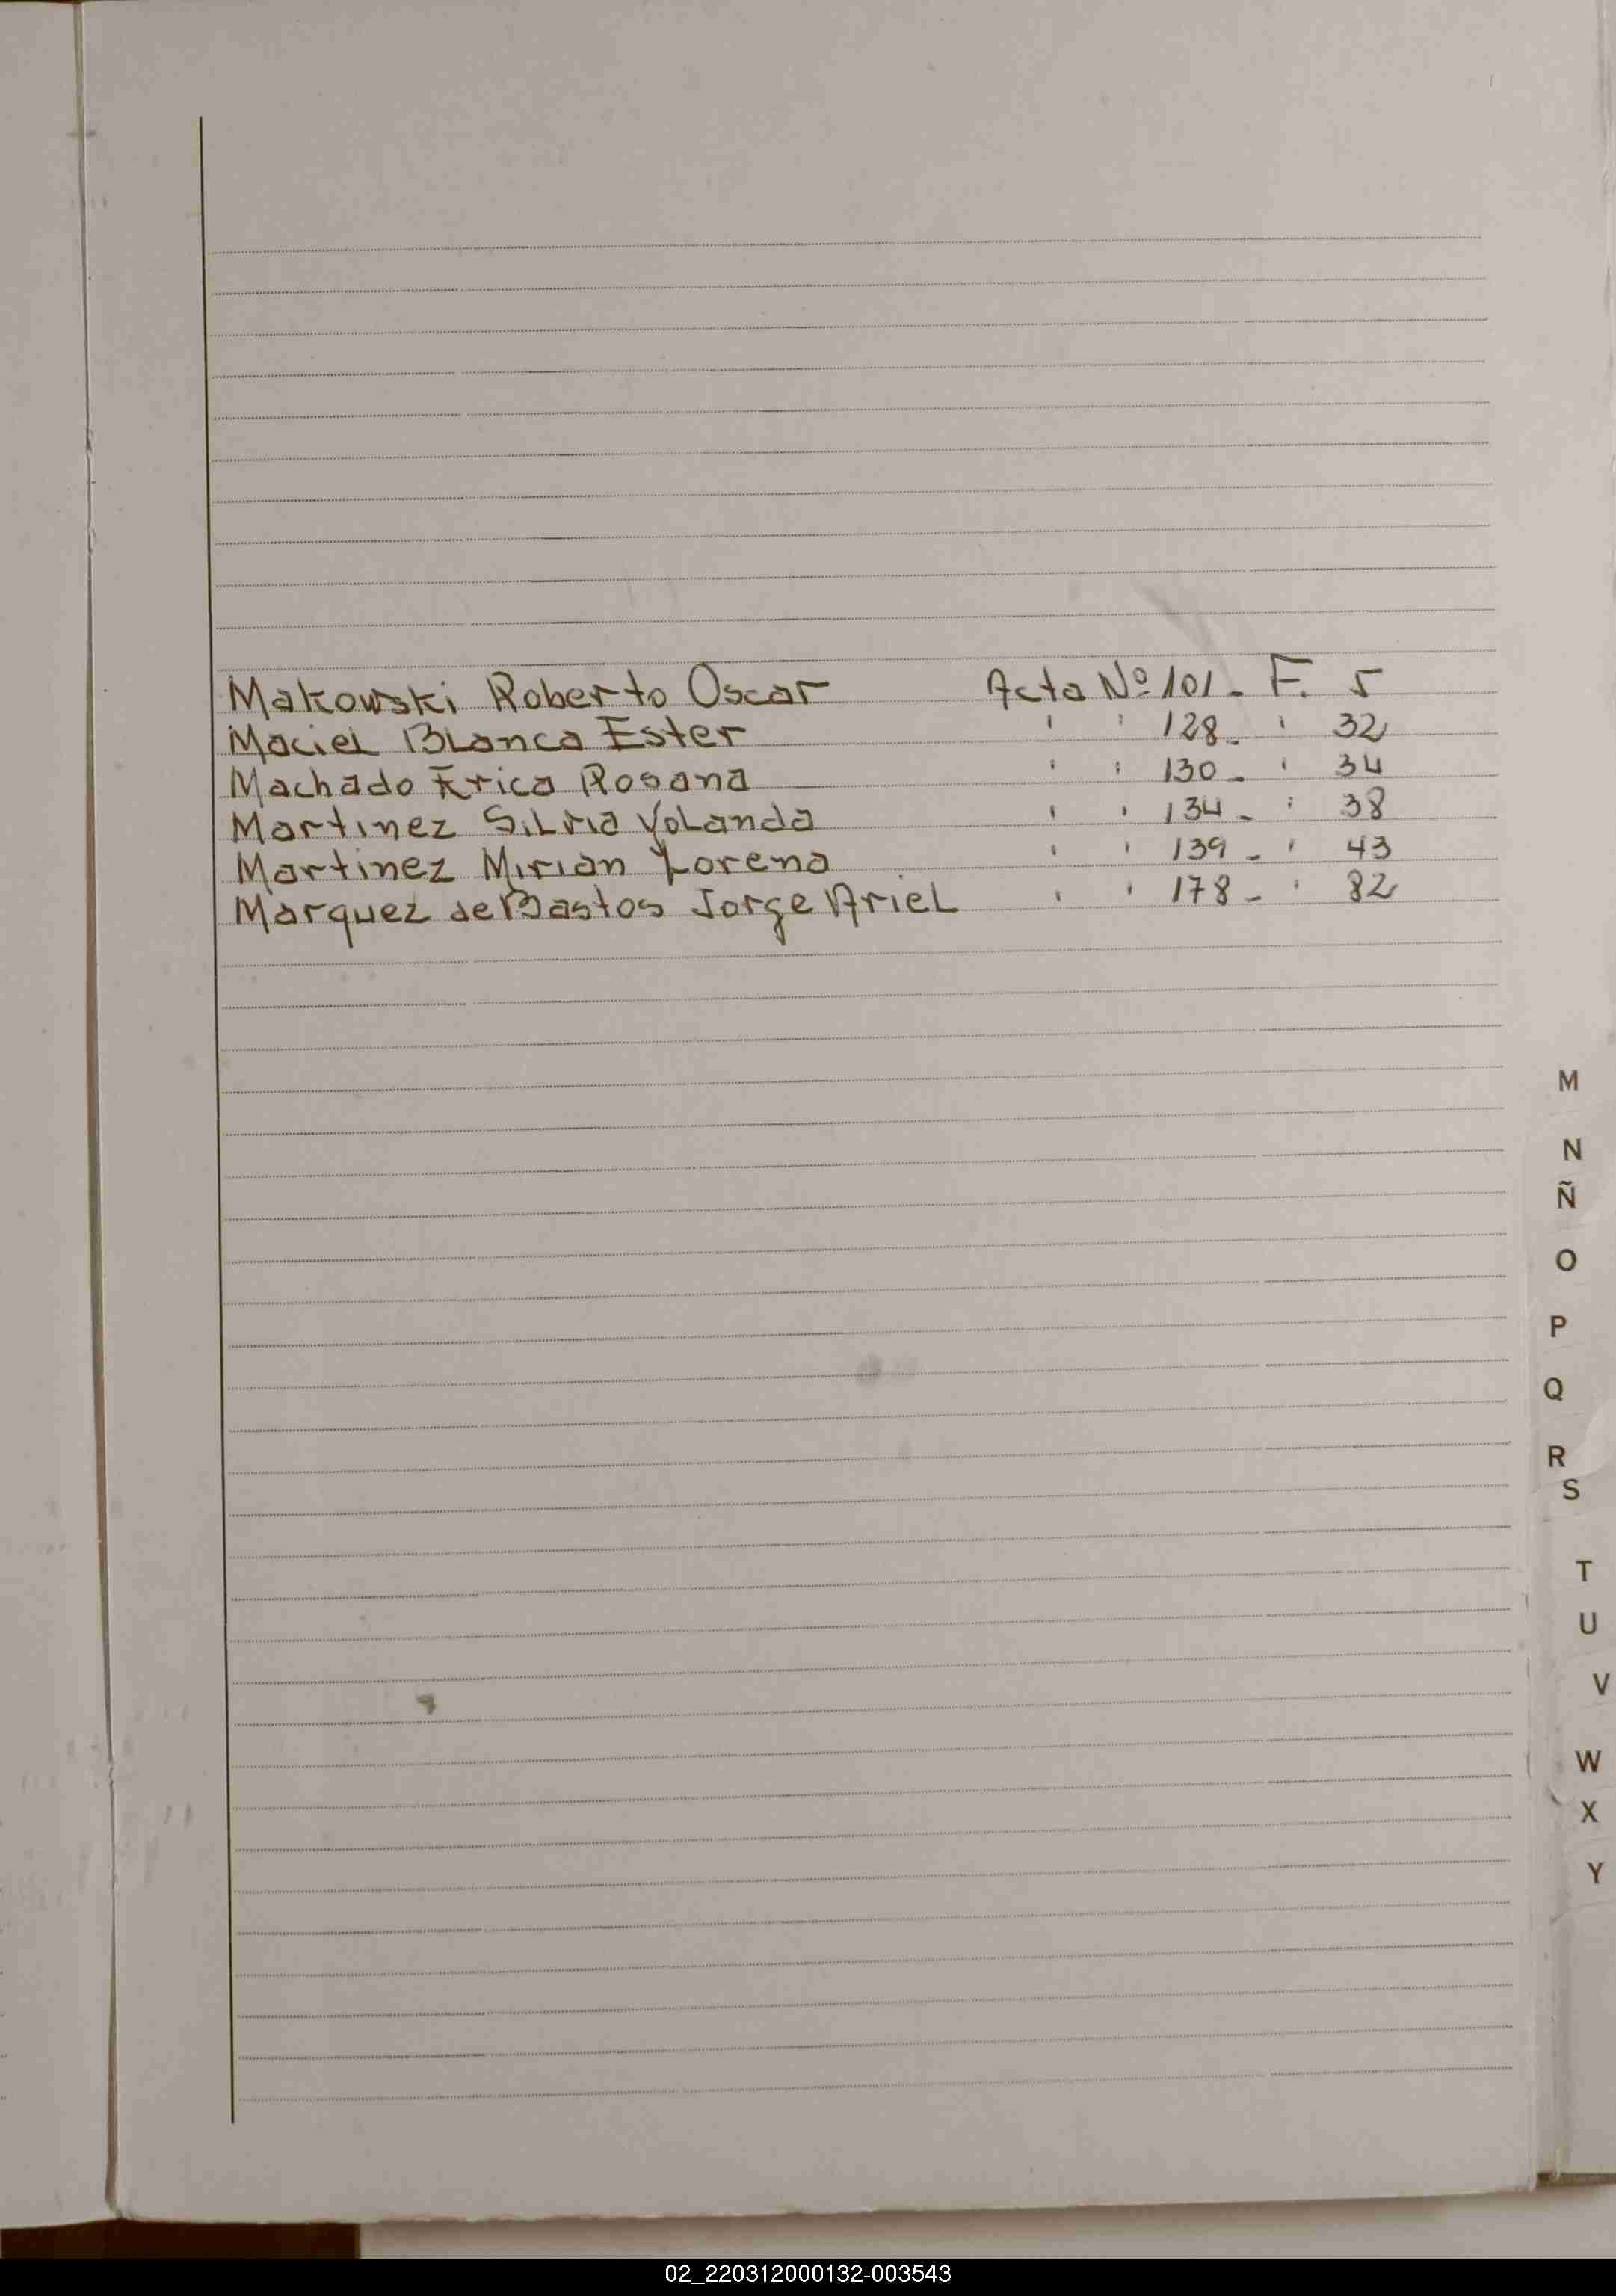 Makowski Roberto Oscar Acta Nº 101 - F. 5
Maciel Blanca Ester " " 128 - " 32
Machado Erica Rosana " " 130 - " 34
Martinez Silvia Yolanda " " 134 - " 38
Martinez Mirian Lorena " " 139 - " 43
Marquez de Bastos Jorge Ariel " " 178 - " 82
M
N
Ñ
O
P
Q
R
S
T
U
V
W
X
Y
02_220312000132-003543